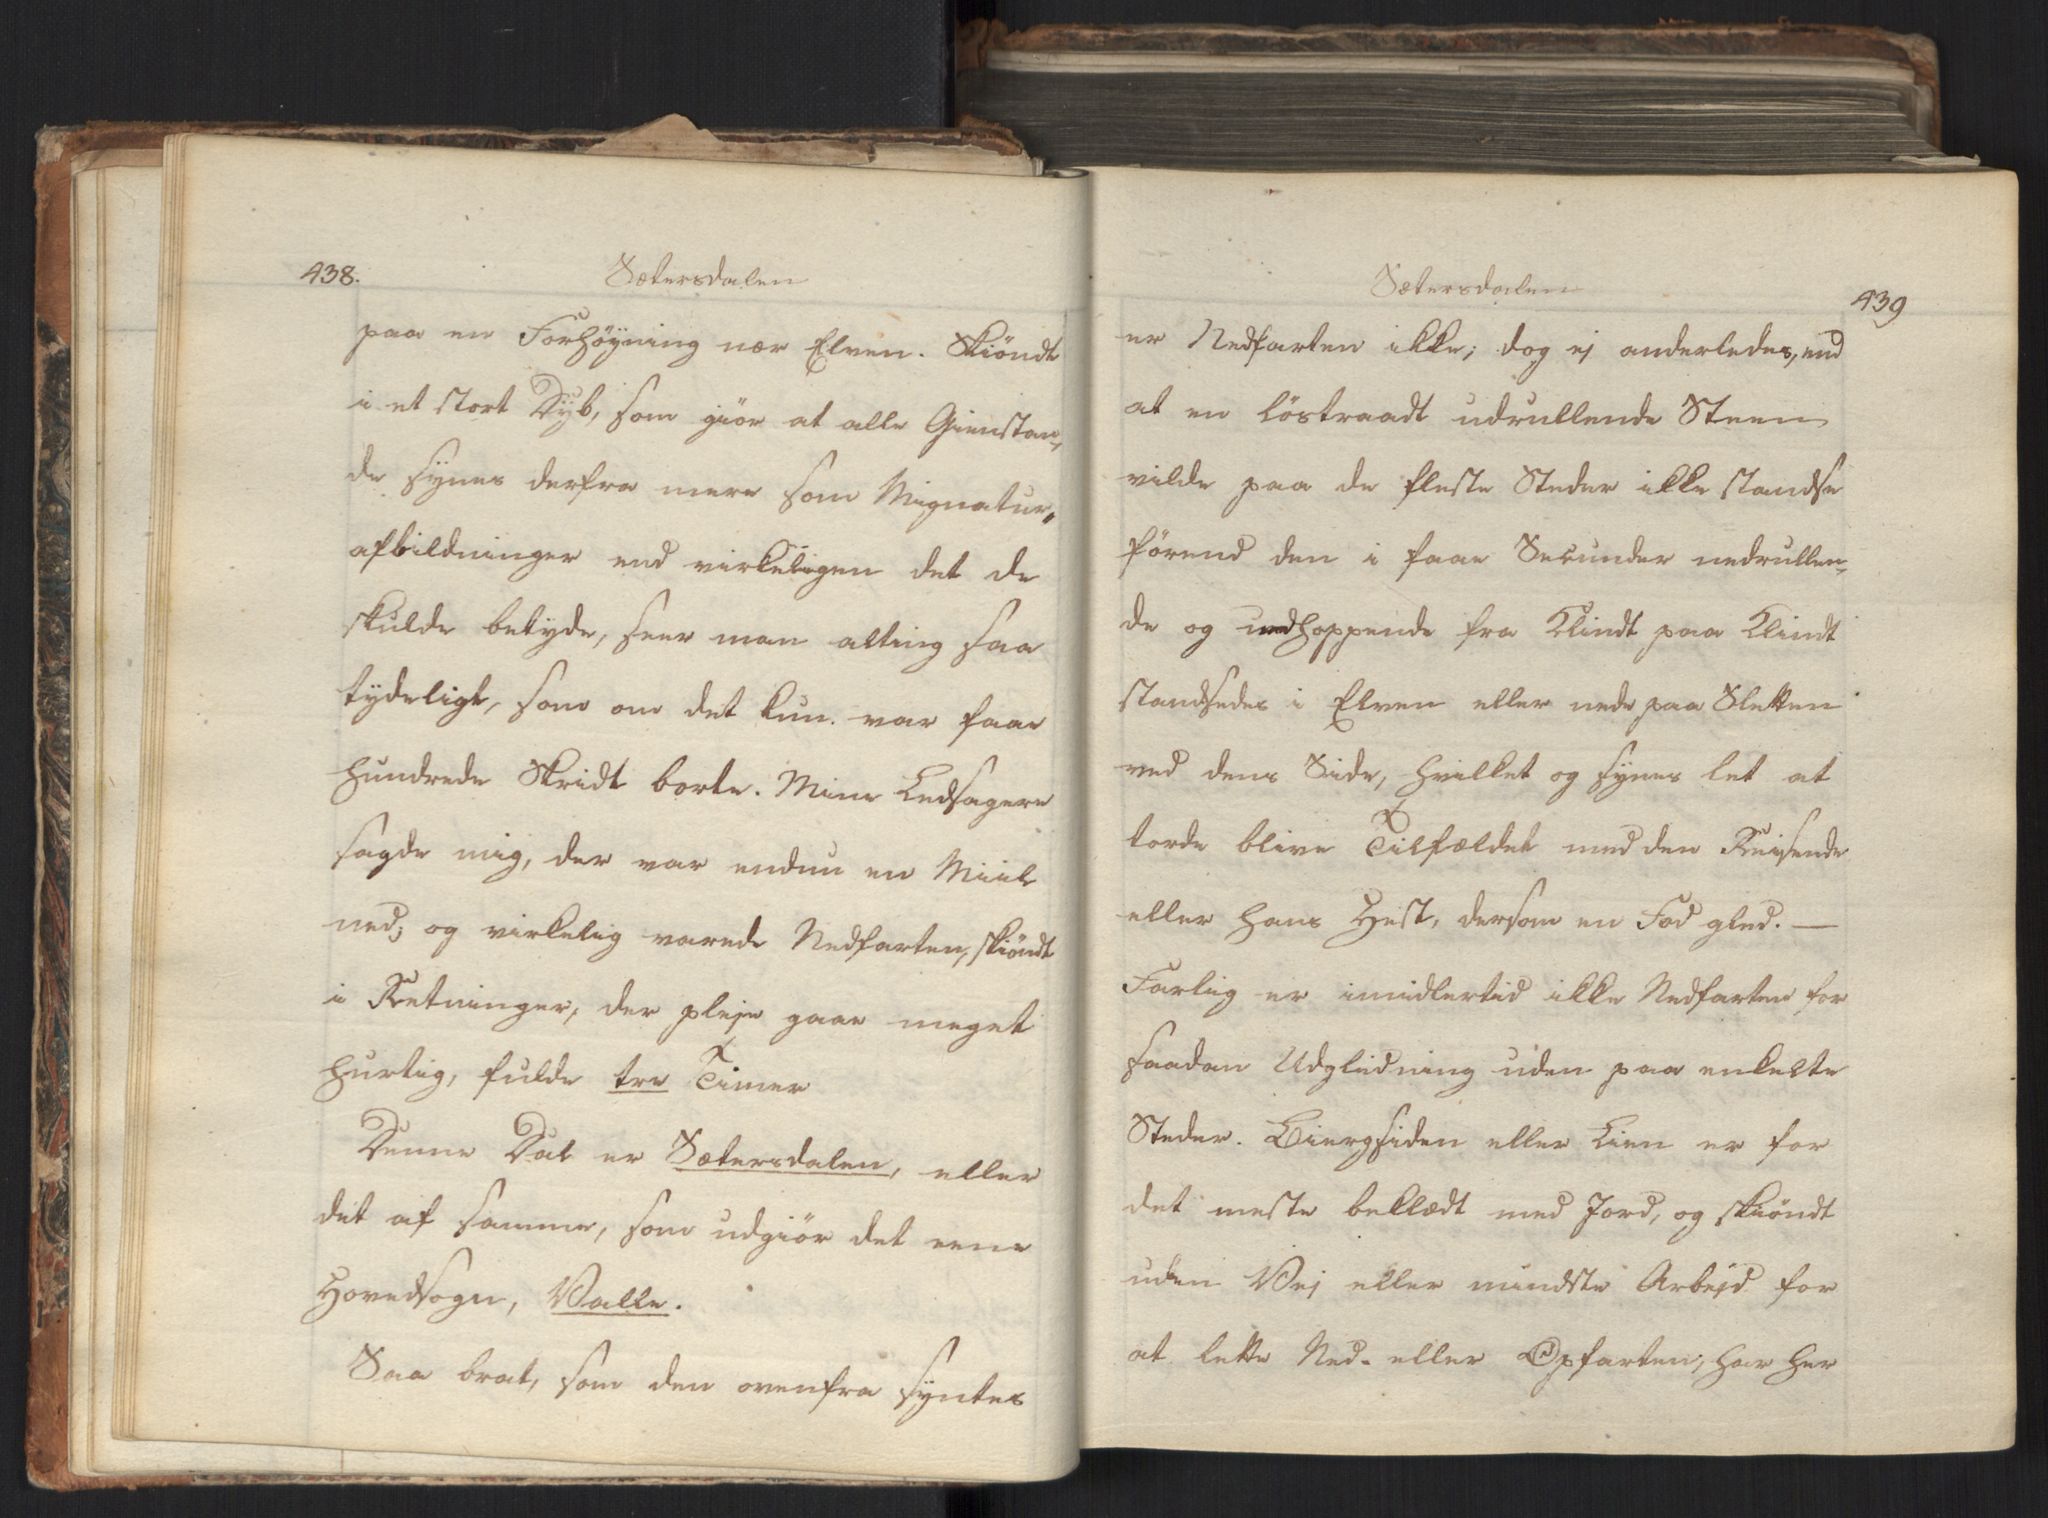 438.
Sætersdalen
paa en Forhöyning nær Elven. Skiöndt
i et stort Dÿb, som giör at alle Gienstan,
de sÿnes derfra mere som Mignatur„
afbildninger end virkeligen det de
skulde betÿde, seer man alting saa
tÿdeligt, som om det kun var faae
hundrede Skridt borte. Mine Ledsagere
sagde mig, der var endnu en Miil
ned; og virkelig varede Nedfarten, skiöndt
i Retninger, der pleje gaae meget
hurtig, fulde tre Timer
Denne Dal er Sætersdalen, eller
det af samme, som udgiör det eene
Hovedsogn, Valle.
Saa brat, som den ovenfra sÿntes
Sætersdalen
439
er Nedfarten ikke; dog ej anderledes, end
at en löstraadt udrullende Steen
vilde paa de fleste Steder ikke standse
förend den i faae Secunder nedrullen,
de og nedhoppende fra Klindt paa Klindt
standsedes i Elven eller nede paa Sletten
ved dens Side, hvilket og sÿnes let at
torde blive Tilfældet med den Reisende
eller hans Hest, dersom en Fod gled. —
Farlig er imidlertid ikke Nedfarten for
saadan Udglidning uden paa enkelte
Steder. Biergsiden eller Lien er for
det meste beklædt med Jord, og skiöndt
uden Vej eller mindste Arbejd for
at lette Ned- eller Opfarten, har her